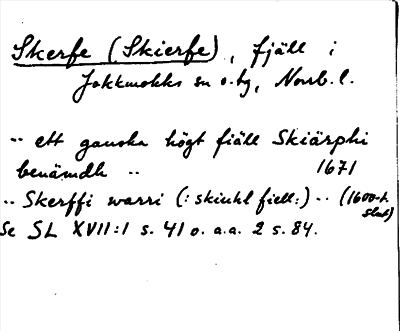 Skerfe (Skierfe), fjäll i
Jokkmokks sn o. tg, Norrb. l.
·· ett ganska högt fiäll Skiärphi
benämdh ·· 1671
·· Skerffi warri (: skiuhl fiell:) ·· (1600-t. slut)
Se SL XVII:1 s. 41 o. a.a. 2 s. 84.